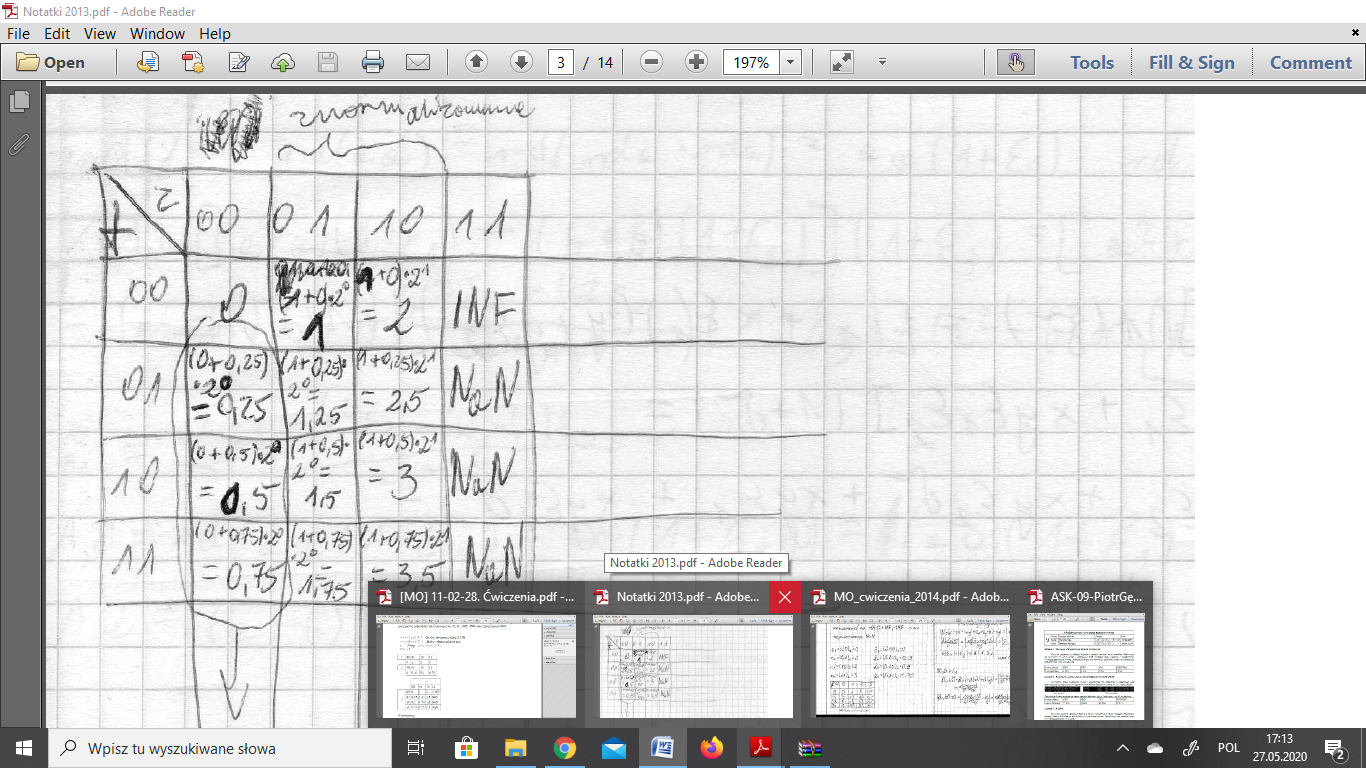 Notatki 2013.pdf - Adobe Reader
File Edit View Window Help
Open 3 / 14 197% Tools Fill & Sign Comment
znormalizowane
f z 00 01 10 11
00 0 (1+0)·2⁰ = 1 (1+0)·2¹ = 2 INF
01 (0+0,25)·2⁰ = 0,25 (1+0,25)·2⁰ = 1,25 (1+0,25)·2¹ = 2,5 NaN
10 (0+0,5)·2⁰ = 0,5 (1+0,5)·2⁰ = 1,5 (1+0,5)·2¹ = 3 NaN
11 (0+0,75)·2⁰ = 0,75 (1+0,75)·2⁰ = 1,75 (1+0,75)·2¹ = 3,5 NaN
Notatki 2013.pdf - Adobe Reader
[MO] 11-02-28. Ćwiczenia.pdf -... Notatki 2013.pdf - Adobe... MO_cwiczenia_2014.pdf - Adob... ASK-09-PiotrGę...
Wpisz tu wyszukiwane słowa POL 17:13
27.05.2020 2